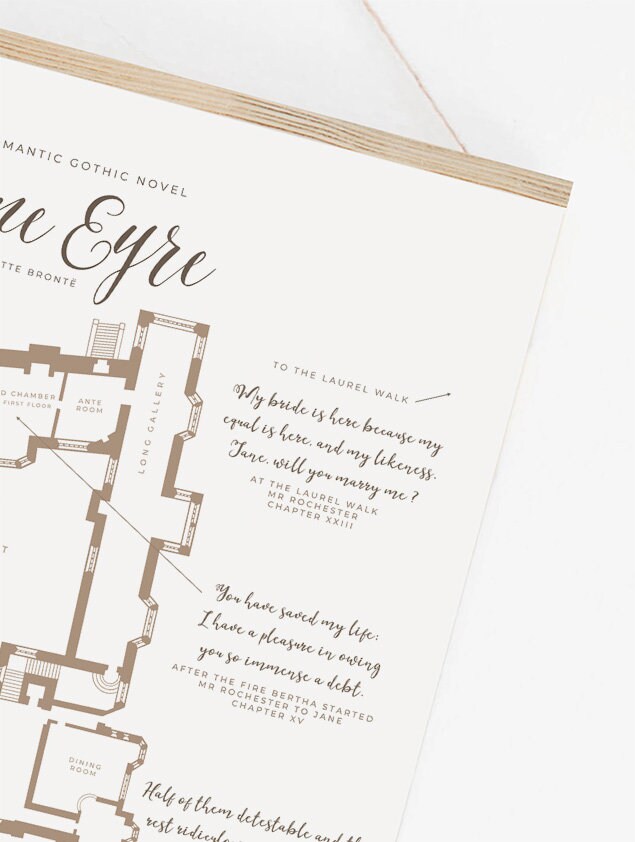 MANTIC GOTHIC NOVEL
ne Eyre
TTE BRONTË
D CHAMBER
FIRST FLOOR
ANTE
ROOM
LONG GALLERY
TO THE LAUREL WALK
My bride is here because my
equal is here, and my likeness.
Jane, will you marry me?
AT THE LAUREL WALK
MR ROCHESTER
CHAPTER XXIII
T
You have saved my life:
I have a pleasure in owing
you so immense a debt.
AFTER THE FIRE BERTHA STARTED
MR ROCHESTER TO JANE
CHAPTER XV
DINING
ROOM
Half of them detestable and th
rest ridiculo